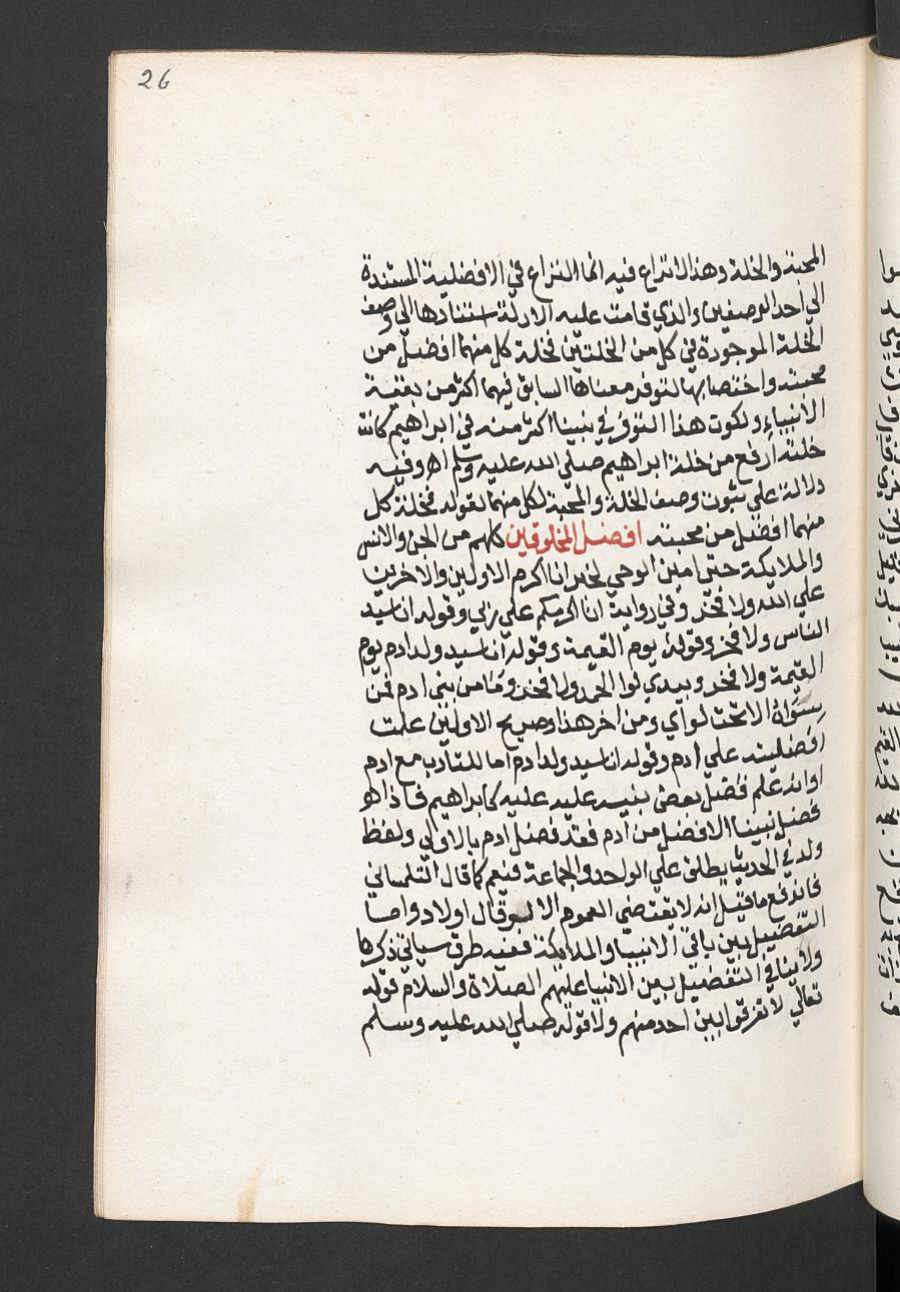 26
المحبة والخلة وهذا لا نزاع فيه انما النزاع في الافضلية المستندة
الي احد الوصفين والذي قامت عليه الادلة استنادها الي وصف
الخلة الموجودة في كل من الخلتين فخلة كل منهما افضل من
محبته واختصابها لتوفر معناها السابق فيهما اكثر من بقية
الانبياء ولكون هذا التوفر في نبينا اكثر منه في ابراهيم كانت
خلته ارفع من خلة ابراهيم صلي الله عليه وسلم اه وفيه
دلالة علي ثبوت وصف الخلة والمحبة لكل منهما لقوله فخلة كل
منهما افضل من محبته افضل المخلوقين كلهم من الجن والانس
والملايكة حتي امين الوحي لخبر انا اكرم الاولين والاخرين
علي الله ولا فخر وفي رواية انا اكرمكم علي ربي وقوله انا سيد
الناس ولا فخر وقوله يوم القيمة وقوله انا سيد ولد ادم يوم
القيمة ولا فخر وبيدي لوا الحمد ولا فخر وما من بني ادم فمن
سواه الا تحت لواي ومن اخر هذا وصريح الاولين علمت
افضليته علي ادم وقوله انا سيد ولد ادم اما للتادب مع ادم
اوانه علم فضل بعض بنيه عليه عليه كابراهيم فاذا هو
فضل نبينا الافضل من ادم فقد فضل ادم بالاولي ولفظ
ولد في الحديث يطلق علي الواحد والجماعة فيعم كما قال التلمساني
فاندفع ما قيل انه لا يقتضي العموم الا لو قال اولاد واما
التفضيل بين باقي الانبيا والملايكة ففيه طرق سياتي ذكرها
ولا ينافي التفضيل بين الانبيا عليهم الصلاة والسلام قوله
تعالي لا تفرقوا بين احد منهم ولا قوله صلي الله عليه وسلم